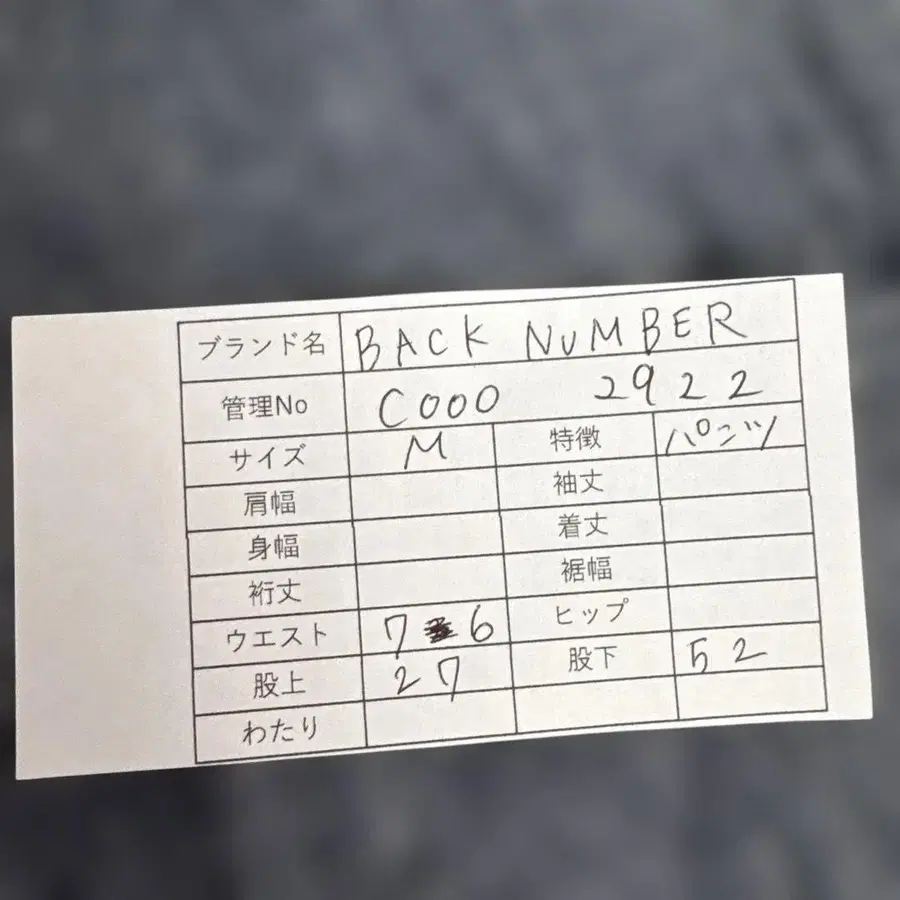 ブランド名 BACK NUMBER
管理No C000 2922
サイズ M 特徴 パンツ
肩幅 袖丈
身幅 着丈
裄丈 裾幅
ウエスト 7 6 ヒップ
股上 27 股下 52
わたり